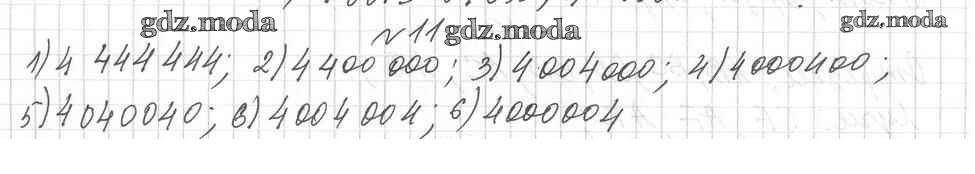 gdz.moda
№11 gdz.moda gdz.moda
1) 4 444 444; 2) 4 400 000; 3) 4004000; 4) 4000400;
5) 4040040; в) 4004004; 6) 4000004